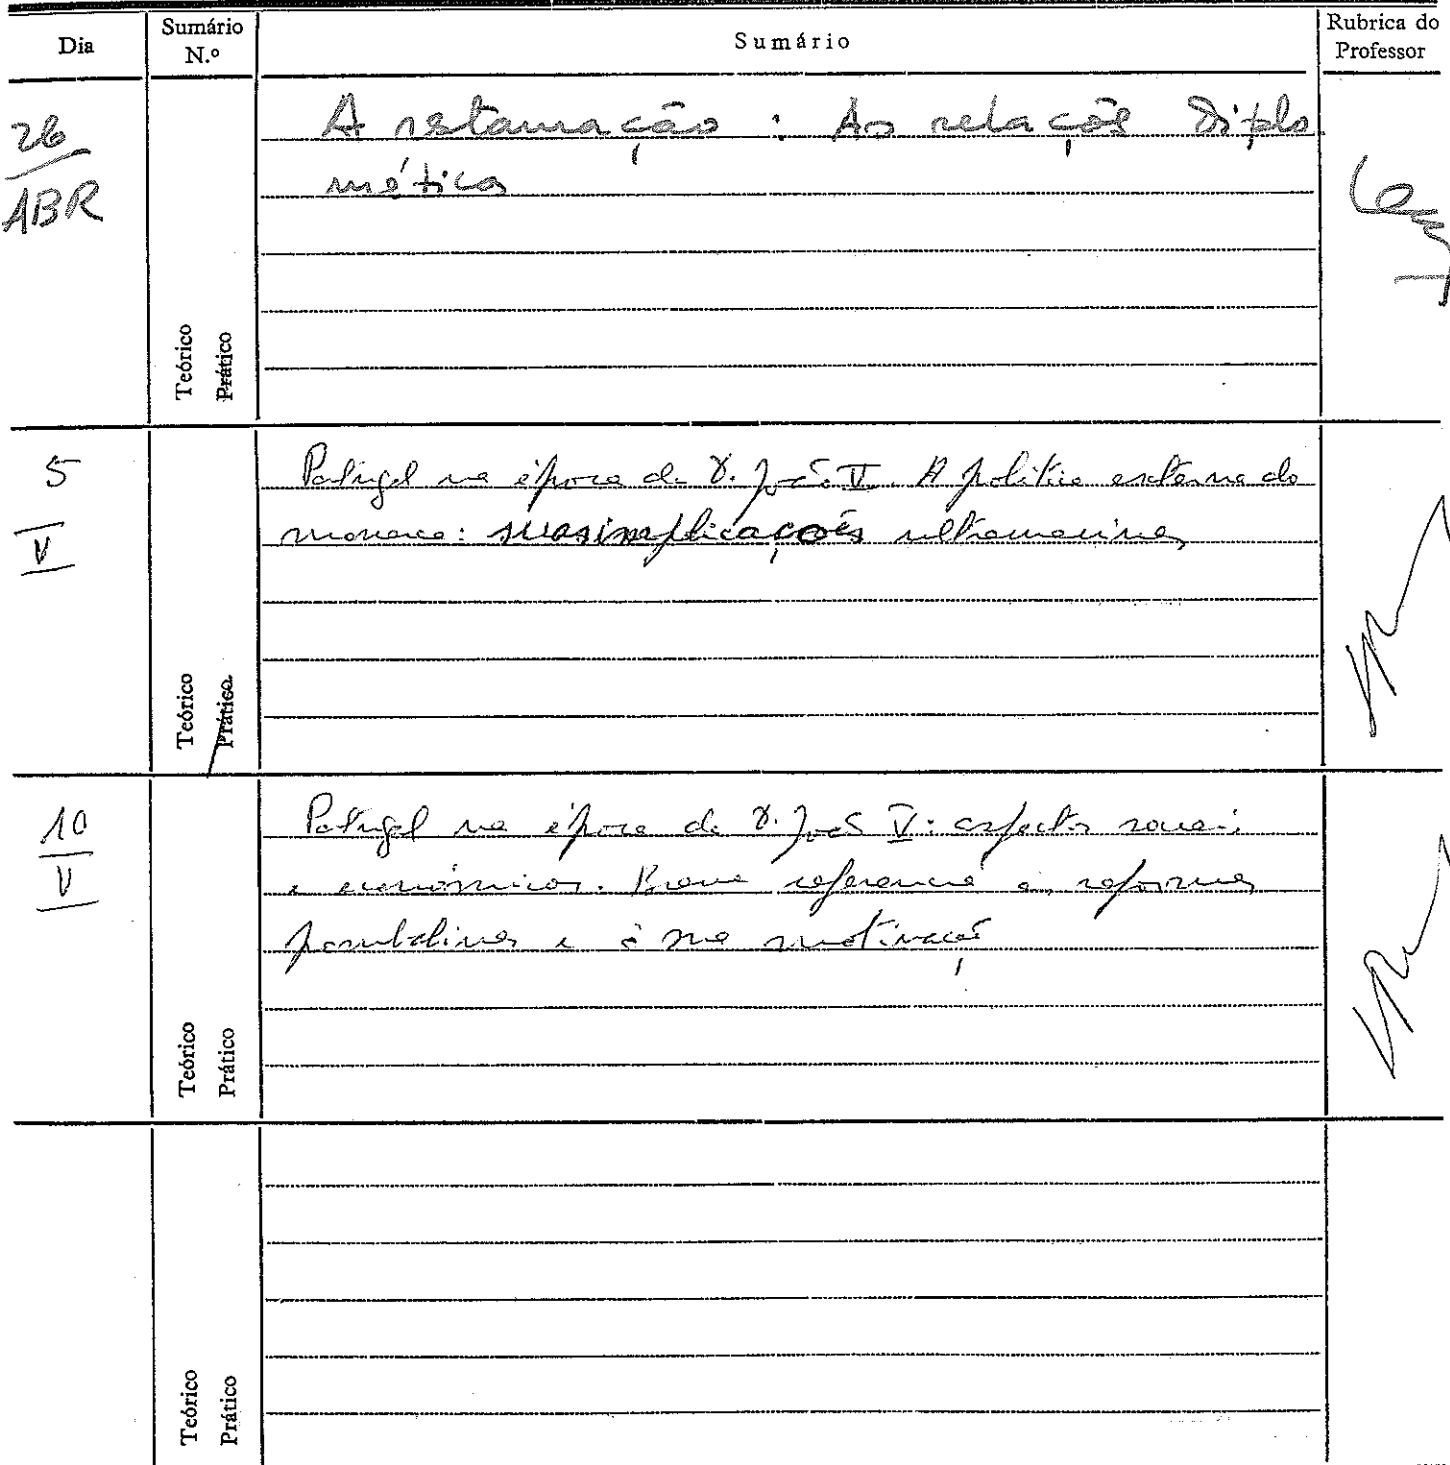 Dia
Sumário N.º
Sumário
Rubrica do Professor
26
ABR
A restauração : As relações diplo
máticas
Teórico
Prático
5
V
Portugal na época de D. João V. A política externa do
monarca: suas implicações ultramarinas
Teórico
Prático
10
V
Portugal na época de D. João V: aspectos sociais
e económicos. Breve referência às reformas
pombalinas e à sua motivação
Teórico
Prático
Teórico
Prático